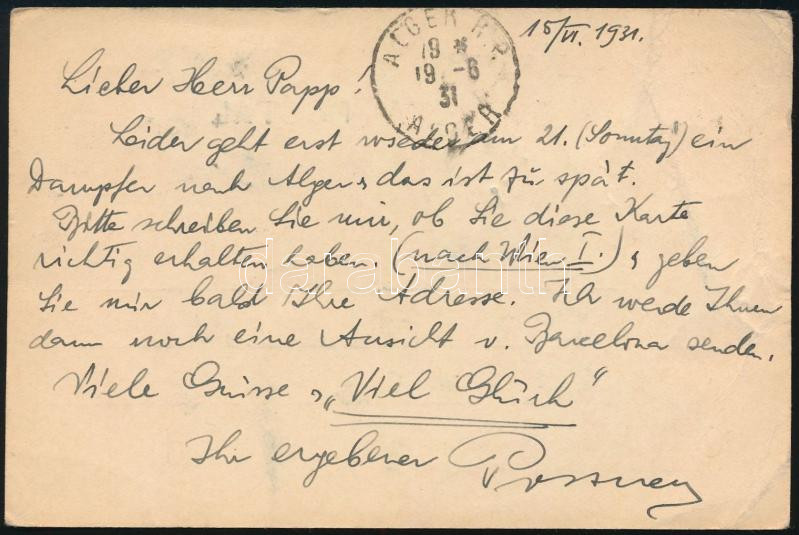 15/VI. 1931.
ALGER R.P.
19 *
19 -6
31
ALGER
Lieber Herr Papp!
Leider geht erst wieder am 21. (Sonntag) ein
Dampfer nach Alger, das ist zu spät.
Bitte schreiben Sie mir, ob Sie diese Karte
richtig erhalten haben. (nach Wien I.), geben
Sie mir bald Ihre Adresse. Ich werde Ihnen
dann noch eine Ansicht v. Barcelona senden.
Viele Grüsse, „Viel Glück"
Ihr ergebener
darabanth.com